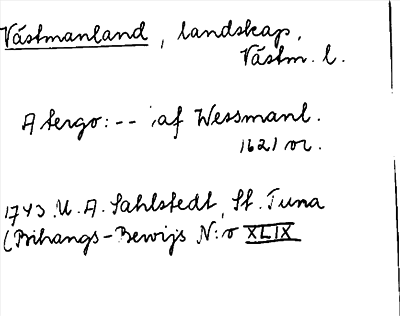 Västmanland, landskap,
Västm. l.
A tergo: -- af Wessmanl.
1621 or.
1743. U. A. Sahlstedt, St. Tuna
(Bihangs-Bewijs N:o XLIX